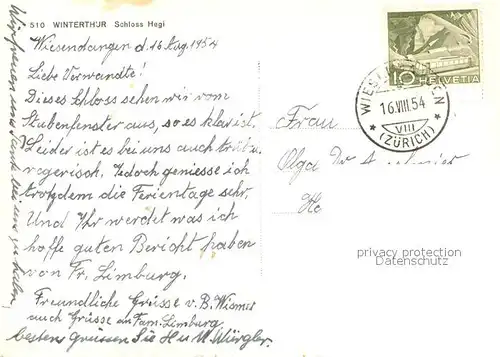 510 WINTERTHUR Schloss Hegi
Wiesendangen d. 16 Aug. 1954
Liebe Verwandte!
Dieses Schloss sehen wir vom
Stubenfenster aus, so es klar ist.
Leider ist es bei uns auch trüb u.
regerisch. Jedoch geniesse ich
trotzdem die Ferientage sehr.
Und Ihr werdet was ich
hoffe guten Bericht haben
von Fr. Limburg.
Freundliche Grüsse v. B. Wismer
auch Grüsse an Fam. Limburg
bestens grüssen Sie H u M. Würgler.
Wir freuen uns
10 HELVETIA
16.VIII.54
VIII
(ZÜRICH)
Frau
Olga
privacy protection
Datenschutz